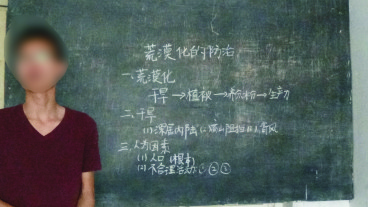 荒漠化的防治
一、荒漠化
干旱→植被→→生产力
二、干旱
(1)深居内陆
三、人为因素
(1)人口
(2)不合理活动:①②③